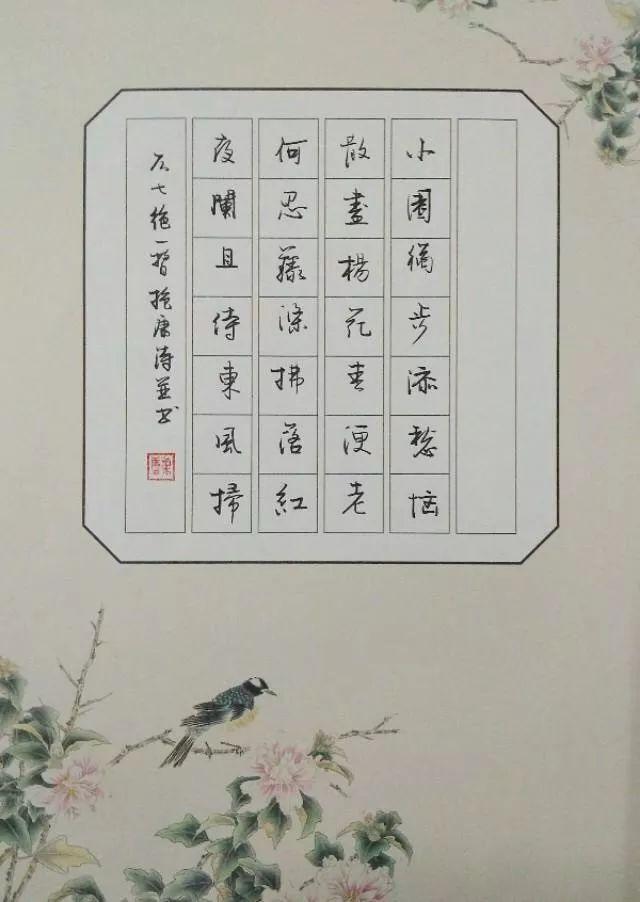 小園獨步添愁惱
散盡楊花春便老
何忍條拂落紅
夜闌且待東風掃
仄七絕一首 抱康詩並書